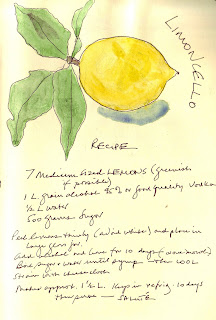 LIMONCELLO
RECIPE
7 Medium Sized LEMONS (greenish
if possible)
1 L. grain alcohol 95% or good quality Vodka
½ L water
500 grams sugar
Peel lemons thinly (avoid white) and place in
large glass jar.
Add alcohol and leave for 10 days
Boil sugar + water until syrup — then COOL
Strain with cheesecloth.
Makes approx. 1 ½ L. Keep in refrig. 10 days
— SALUTE